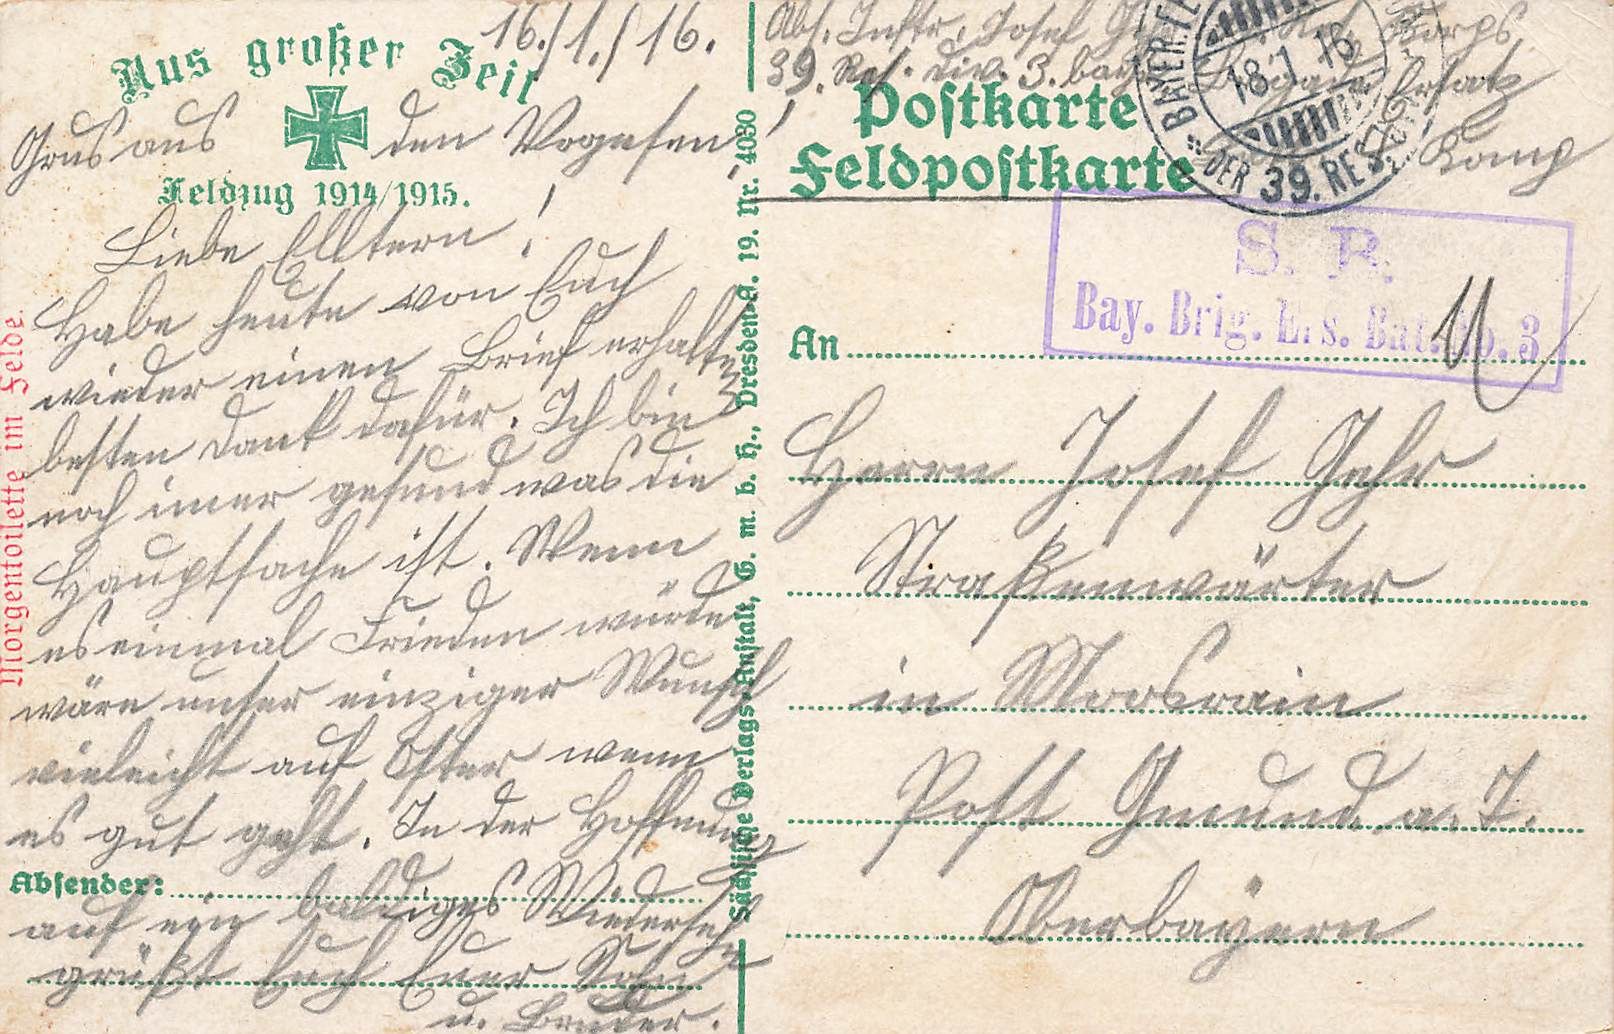 Aus großer Zeit
16./1./16.
Grus aus den Vogesen
Feldzug 1914/1915.
!
Liebe Elltern!
Habe heute von Euch
wieder einen Brief erhalten
besten Dank dafür. Ich bin
noch imer gesund was die
Hauptsache ist. Wenn
es einmal Frieden würde
wäre unser einziger Wunsch
vieleicht auf Oster wenn
es gut geht. In der Hoffnung
Absender:
auf ein baldiges Wiederseh
grüßt Euch Euer Sohn
u. Bruder.
Morgentoilette im Felde.
Sächsische Verlags-Anstalt, G. m. b. H., Dresden-A. 19. Nr. 4080
Abs. Inftr. Josef Korps
39. Res. Div. 3. bay. Ersatz
Komp
Postkarte
Feldpostkarte
BAYER.
18.1.16
DER 39. RES.
S. B.
Bay. Brig. Ers. Bat. No. 3
An
Herrn Josef Gehr
Straßenwärter
in Moosrain
Post Gmund a. T.
Oberbayern